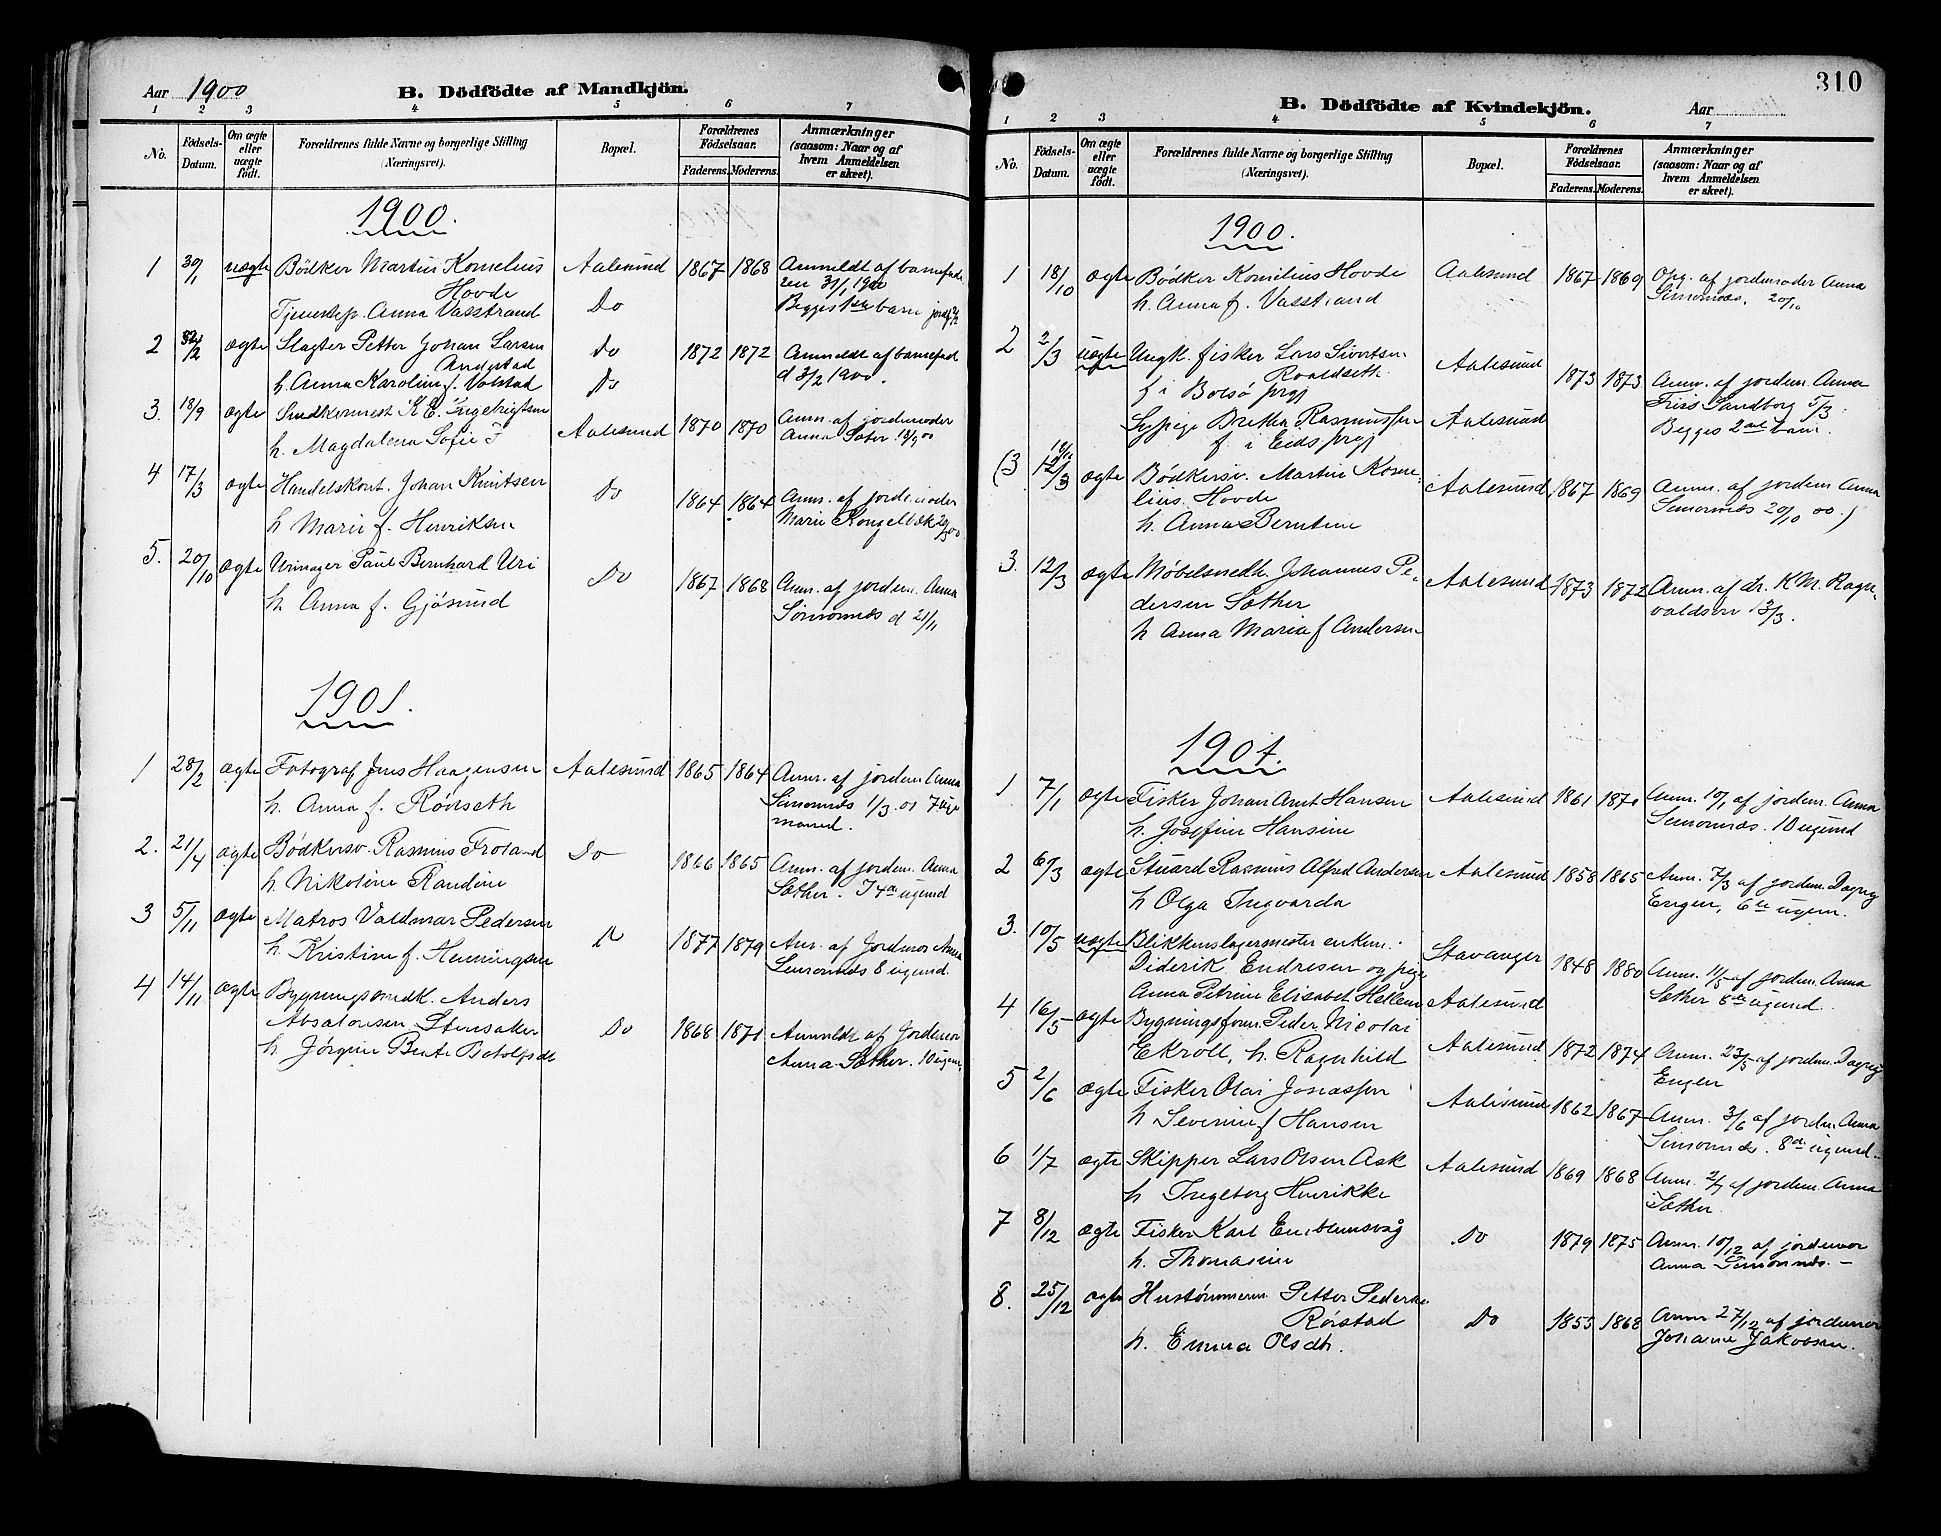 Aar 1900
B. Dödfödte af Mandkjön.
1 2 3 4 5 6 7
No.
Födsels-Datum.
Om ægte eller uægte födt.
Forældrenes fulde Navne og borgerlige Stilling
(Næringsvei).
Bopæl.
Forældrenes Födselsaar.
Faderens. Moderens.
Anmærkninger
(saasom: Naar og af
hvem Anmeldelsen
er skeet).
1900.
1 30/1 uægte Bödker Martin Kornelius Aalesund 1867 1868 Anmeldt af barnefade
Hovde ren 31/1 1900
Tjenestep. Anna Vasstrand Do Begges 1ste barn
2 2/2 ægte Slagter Petter Johan Larsen Do 1872 1872 Anmeldt af barnefad
d 3/2 1900.
h. Anna Karoline f. Valstad Do
3. 18/9 ægte K. E. Ingebrigtsen Aalesund 1870 1870 Anm. af jordemoder
h. Magdalena Sofie F Anna Sæter 18/9 00
4 17/3 ægte Handelskont. Johan Knutsen Do 1864 1864 Anm. af jordemoder
h Marie f. Henriksen Marie
5. 20/10 ægte Urmager Paul Bernhard Uri Do 1867 1868 Anm. af jordem. Anna
h. Anna f. Gjösund Simonnæs d 21/11
1901.
1 28/2 ægte Fotograf Jens Haagensen Aalesund 1865 1864 Anm. af jordem Anna
h. Anna f. Rönseth Simonnæs 1/3. 01
maaned.
2. 21/4 ægte Bödkersv. Rasmus Froland Do 1866 1865 Anm. af jordem. Anna
h. Nikoline Randine Sæther.
3 5/11 ægte Matros Valdmar Pedersen Do 1877 1879 Anm. af Jordmor Anna
h. Kristine f. Henningsen Simonnæs 8 ugend.
4 14/11 ægte Bygningssnedk. Anders
Absalonsen Stensaker Do 1868 1871 Anmeldt af Jordemor
h Jörgine Berte Anna Sæther. 10
310
B. Dödfödte af Kvindekjön.
Aar
1 2 3 4 5 6 7
No.
Födsels-Datum.
Om ægte eller uægte födt.
Forældrenes fulde Navne og borgerlige Stilling
(Næringsvei).
Bopæl.
Forældrenes Födselsaar.
Faderens. Moderens.
Anmærkninger
(saasom: Naar og af
hvem Anmeldelsen
er skeet).
1900.
1 18/10 ægte Bödker Kornelius Hovde Aalesund 1867 1869 Opg. af jordemoder Anna
h. Anna f. Vasstrand Simonnæs. 20/10
2 2/3 uægte Ungk. fisker Lars Sivertsen Aalesund 1873 1873 Anm. af jordem. Anna
Roaldseth
f i Bolsö prgj Friis Sandborg 5/3.
Sypige Brithe Rasmussen Aalesund Begges 2det barn.
f. i Eids prgj
(3 18/10 12/3 ægte Bödkersv. Martin Korne- Aalesund 1867 1869 Anm. af jordem Anna
lius Hovde Simonnæs 20/10 00.)
h. Anna Berntine
3. 12/3 ægte Möbelsnedk. Johannes Pe- Aalesund 1873 1872 Anm. af dr. K M. Ragn-
dersen Sæther valdson 13/3.
h Anna Maria f Andersen
1901.
1 7/1 ægte Fisker Johan Arnt Hansen Aalesund 1861 1871 Anm. 10/1 af jordem. Anna
h. Josefine Hansine Simonnæs. 10 ugend
2 6/3 ægte Stuard Rasmus Alfred Andersen Aalesund 1858 1865 Anm. 7/3 af jordem. Dagny
h Olga Ingvarda Engen, 6te ugem.
3. 10/5 uægte Blikkenslagermester enkem. Stavanger 1848 1880 Anm. 11/5 af jordem. Anna
Diderik Endresen og pige Sæther 8de ugend.
Anna Petrine Elisabet Hellem Aalesund
4 16/5 ægte Bygningsform. Peder Nicolai
Ekroll, h. Ragnhild Aalesund 1872 1874 Anm. 23/5 af jordem. Dagny
Engen
5 2/6 ægte Fisker Olai Jonassen Aalesund 1862 1867 Anm. 3/6 af jordem. Anna
h Severine f Hansen Simonnæs. 8de ugend.
6 1/7 ægte Skipper Lars Olsen Ask Aalesund 1869 1868 Anm. 2/7 af jordem. Anna
h Ingeborg Henrikke Sæther.
7 8/12 ægte Fisker Karl Emblemsvåg Do 1879 1875 Anm. 10/12 af jordemor
h. Thomasine Anna Simonnæs.
8. 25/12 ægte Hustömmerm. Petter Pedersen
Rörstad Do 1855 1868 Anm 27/12 af jordemor
h. Emma Olsdtr. Johanne Jakobsen.